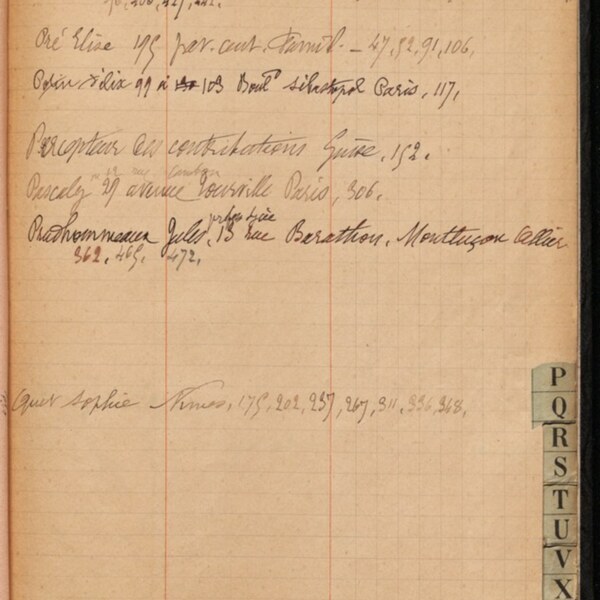 70, 206, 227, 222.
Pré Elise 195 par. cent. Famil. – 47, 52, 91, 106,
Pépin Félix 99 à 103 Boulᵈ Sébastopol Paris, 117,
Percepteur des contributions Guise, 152.
Pascaly 29 avenue Tourville Paris, 306.
Prudhommeaux Jules, 13 rue Barathon, Montluçon Allier
362, 465, 472,
Quet Sophie Nîmes, 175, 202, 237, 267, 311, 336, 368,
P
Q
R
S
T
U
V
X